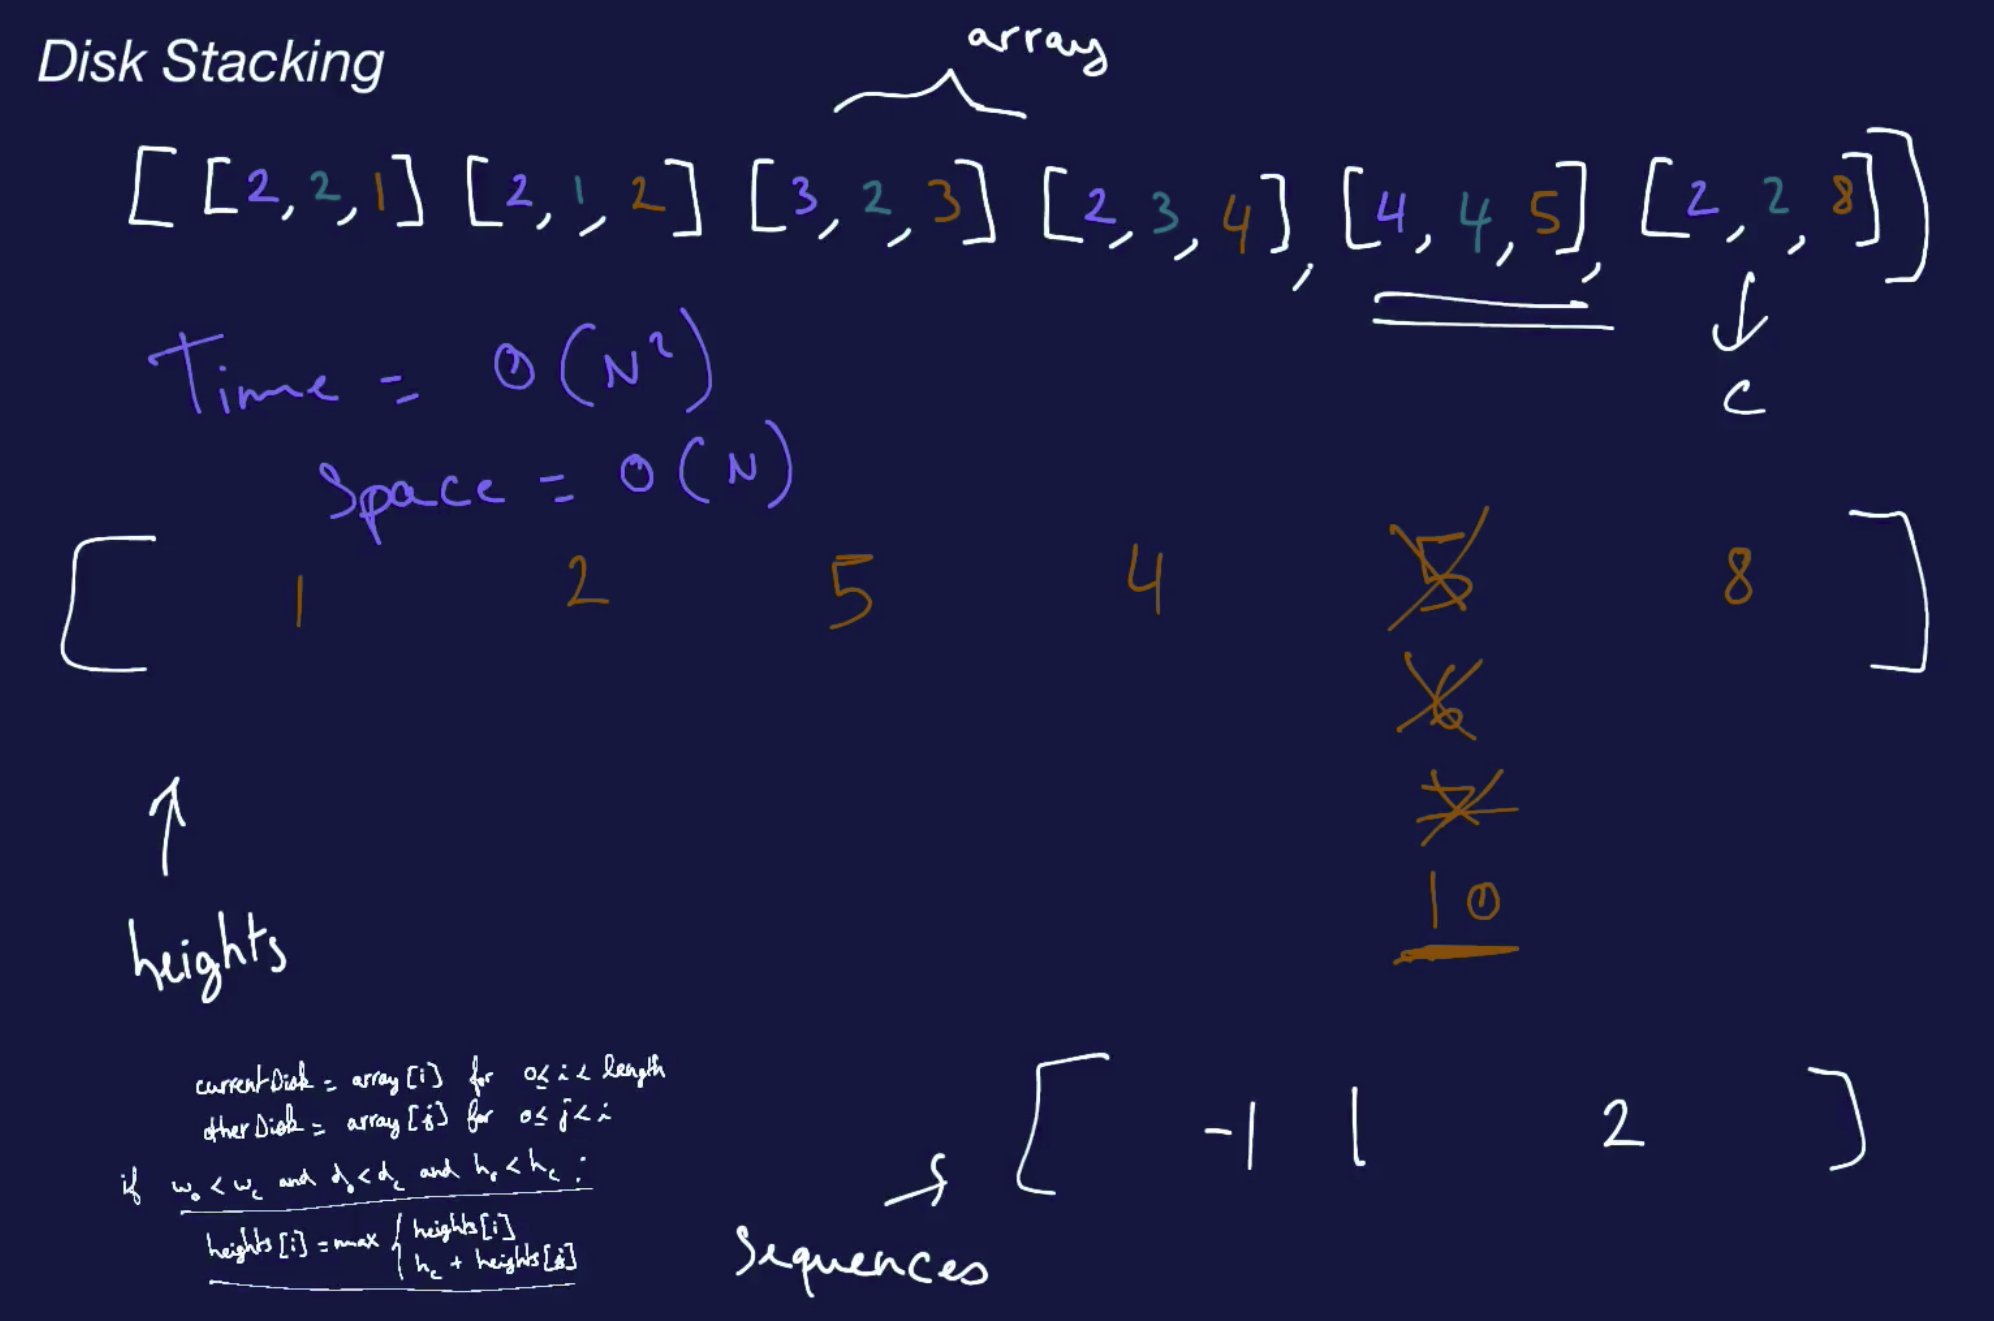 Disk Stacking
array
[ [2,2,1] [2,1,2] [3,2,3] [2,3,4], [4,4,5], [2,2,8] ]
Time = O(N²)
C
Space = O(N)
[ 1 2 5 4 5 8 ]
6
7
10
heights
currentDisk = array[i] for 0≤i<length
otherDisk = array[j] for 0≤j<i
if w₀<w_c and d₀<d_c and h₀<h_c :
heights[i] = max { heights[i]
h_c + heights[j]
[ -1 1 2 ]
Sequences